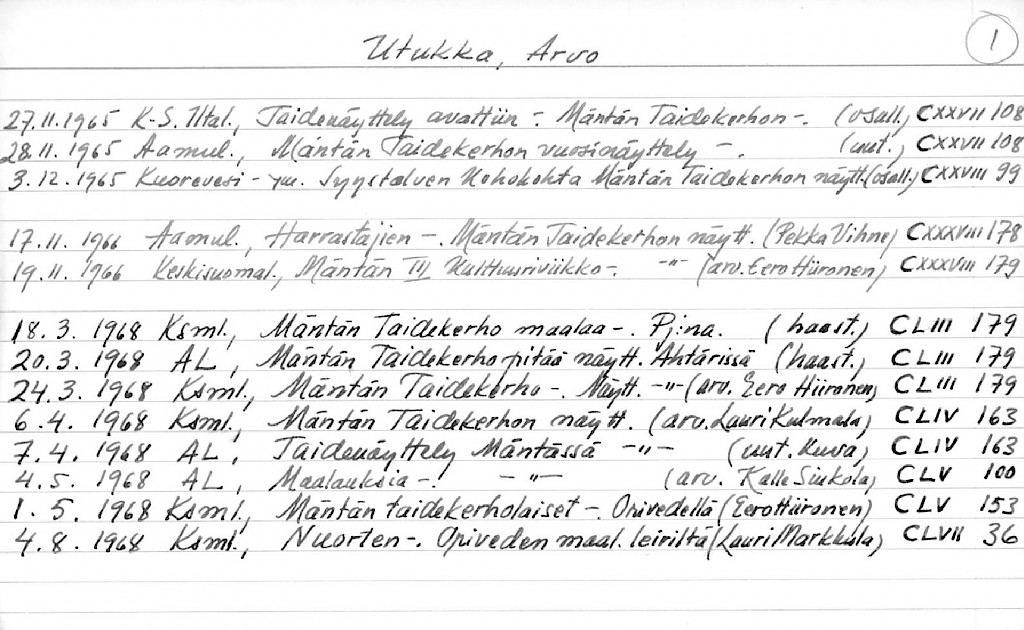 Utukka, Arvo
1
27.11.1965 K-S. Iltal., Taidenäyttely avattiin -. Mäntän Taidekerhon -. (osall.) CXXVII 108
28.11.1965 Aamul., Mäntän Taidekerhon vuosinäyttely -. (uut.) CXXVII 108
3.12.1965 Kuorevesi - ym. Syystalven Kohokohta Mäntän Taidekerhon näytt. (osall.) CXXVIII 99
17.11.1966 Aamul., Harrastajien -. Mäntän Taidekerhon näytt. (Pekka Vihne) CXXXVIII 178
19.11.1966 Keskisuomal., Mäntän III Kulttuuriviikko -. -"- (arv. Eero Hiironen) CXXXVIII 179
18.3.1968 Ksml., Mäntän Taidekerho maalaa -. Pj:na. (haast.) CLIII 179
20.3.1968 AL, Mäntän Taidekerho pitää näytt. Ähtärissä (haast.) CLIII 179
24.3.1968 Ksml., Mäntän Taidekerho -. Näytt. -"- (arv. Eero Hiironen) CLIII 179
6.4.1968 Ksml., Mäntän Taidekerhon näytt. (arv. Lauri Kulmala) CLIV 163
7.4.1968 AL, Taidenäyttely Mäntässä -"- (uut. kuva) CLIV 163
4.5.1968 AL, Maalauksia -. -"- (arv. Kalle Siukola) CLV 100
1.5.1968 Ksml., Mäntän taidekerholaiset -. Orivedellä (Eero Hiironen) CLV 153
4.8.1968 Ksml., Nuorten -. Oriveden maal. leiriltä (Lauri Markkula) CLVII 36